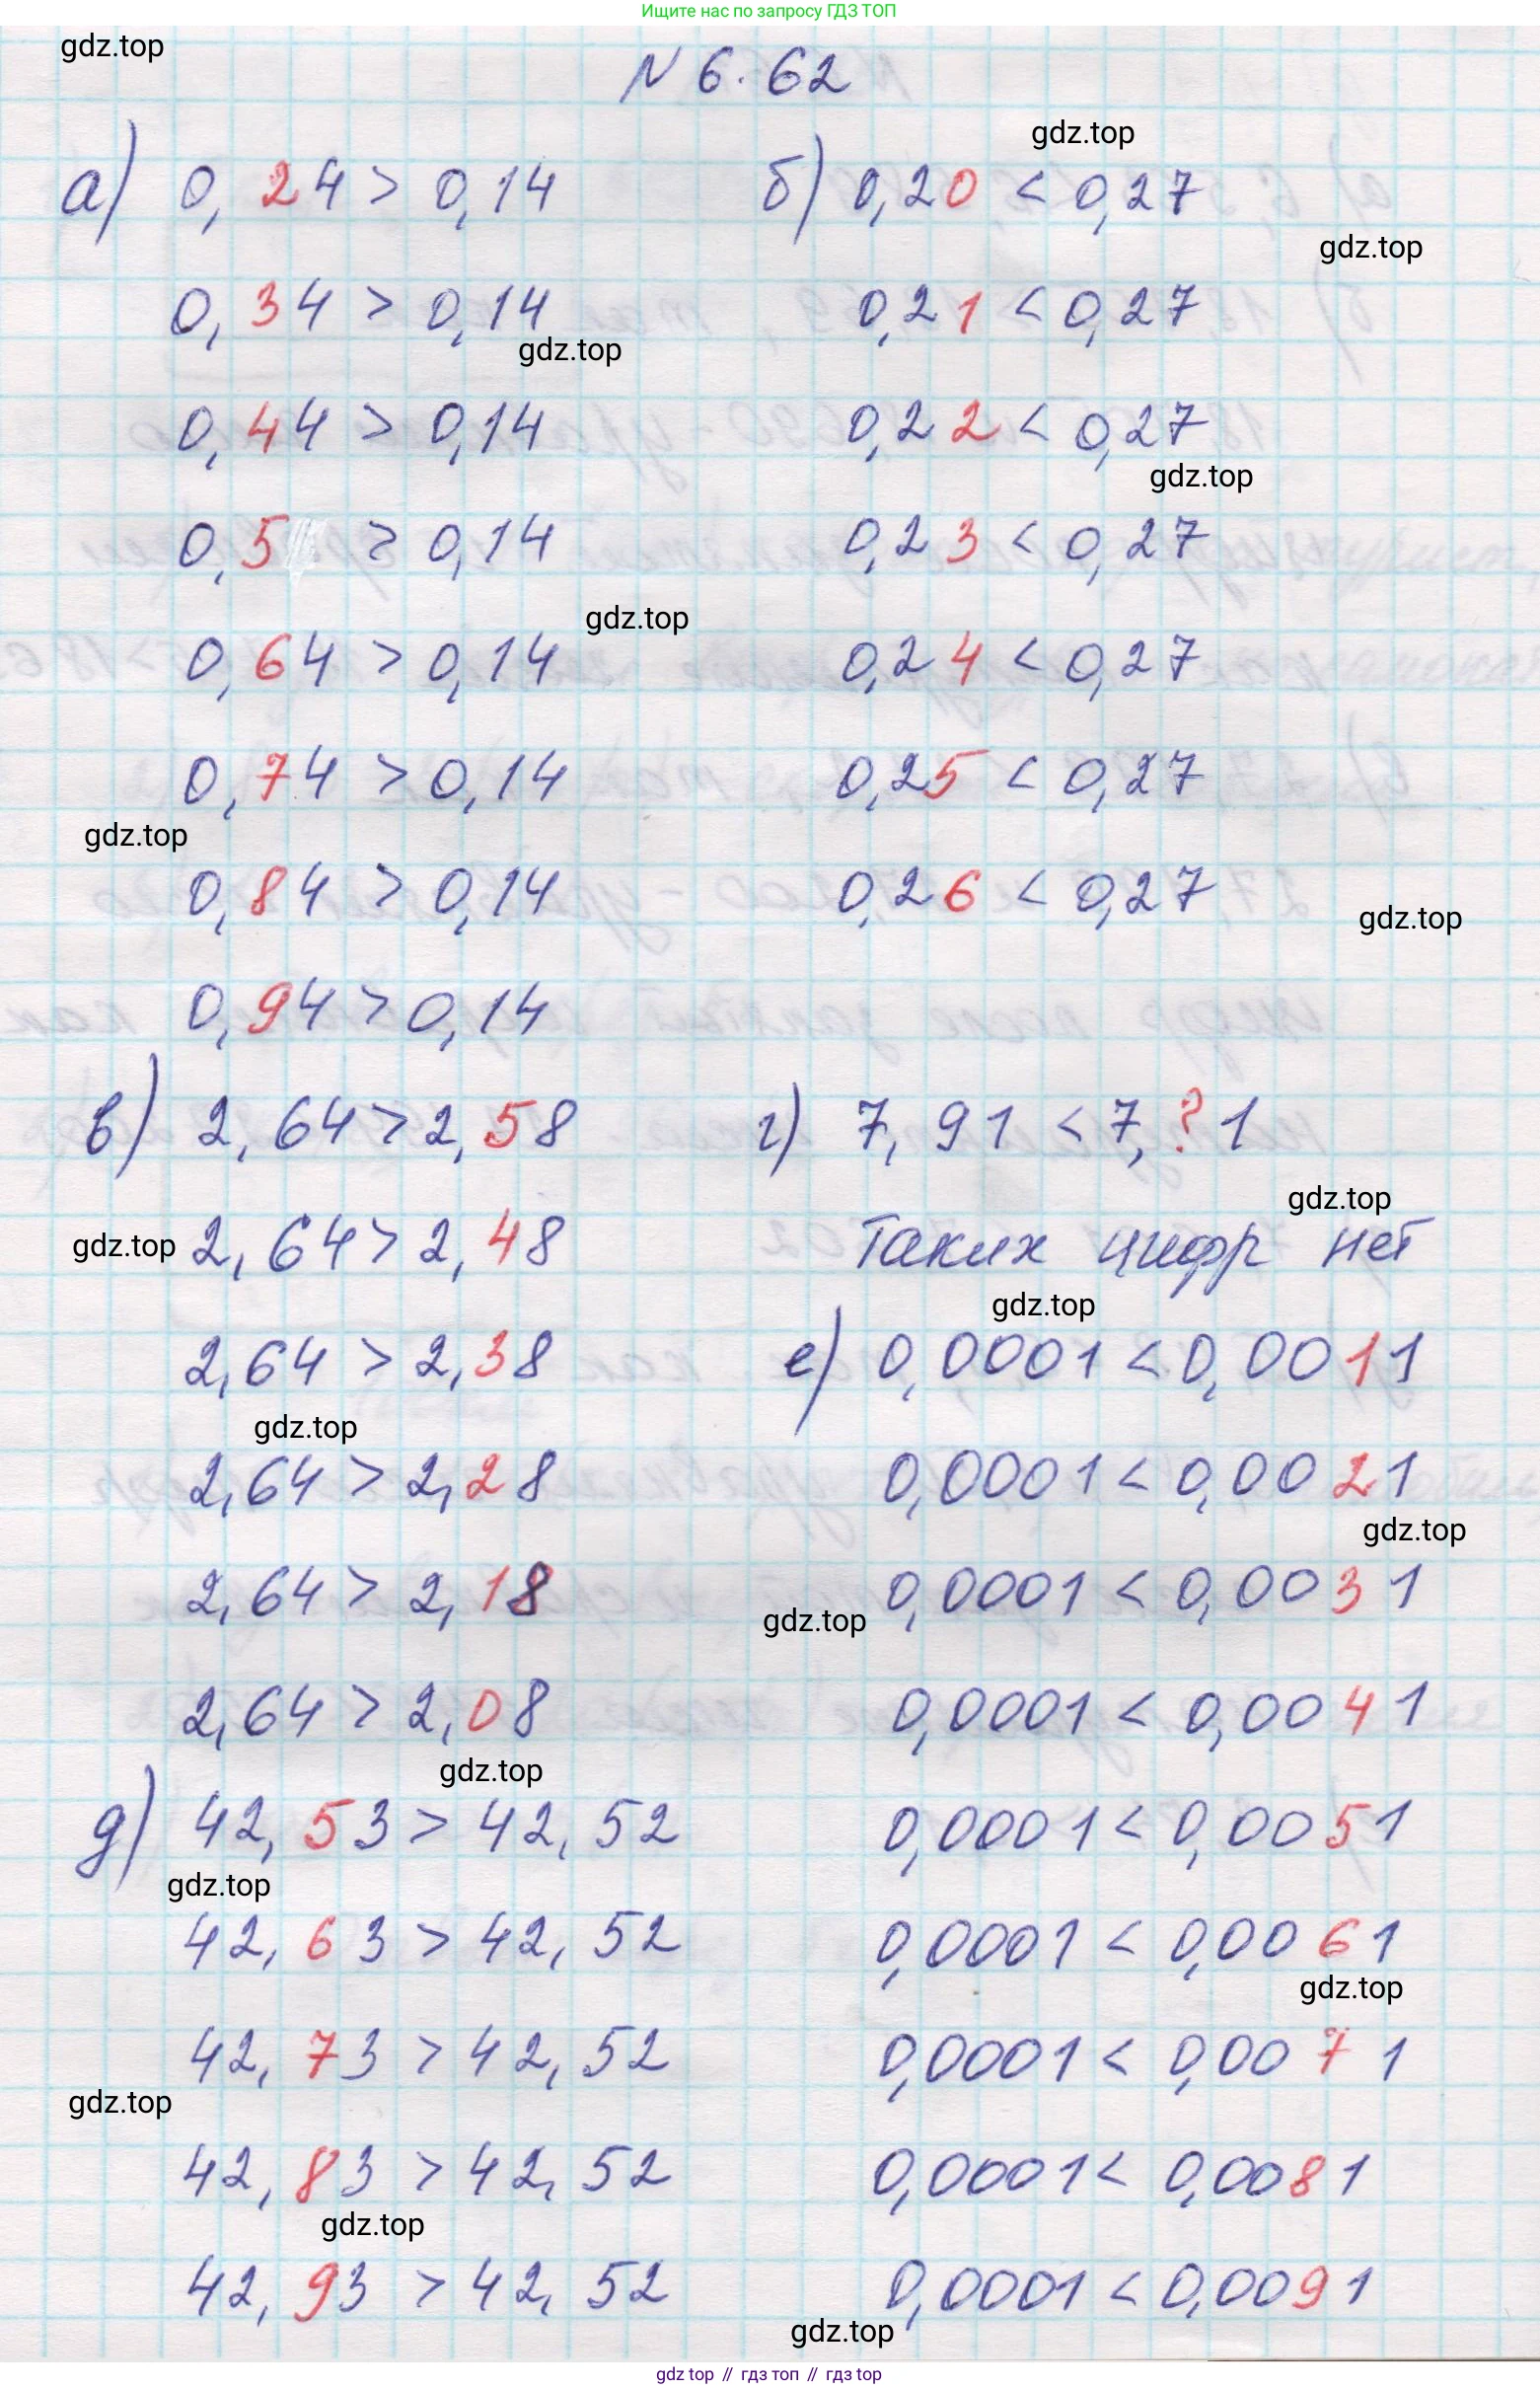 Ищите нас по запросу ГДЗ ТОП
gdz.top
N 6.62
gdz.top
а) 0,24 > 0,14
б) 0,20 < 0,27
gdz.top
0,34 > 0,14
0,21 < 0,27
gdz.top
0,44 > 0,14
0,22 < 0,27
gdz.top
0,5 > 0,14
0,23 < 0,27
gdz.top
0,64 > 0,14
0,24 < 0,27
0,74 > 0,14
0,25 < 0,27
gdz.top
0,84 > 0,14
0,26 < 0,27
gdz.top
0,94 > 0,14
в) 2,64 > 2,58
г) 7,91 < 7,?1
gdz.top
gdz.top
2,64 > 2,48
Таких цифр нет
gdz.top
2,64 > 2,38
е) 0,0001 < 0,0011
gdz.top
2,64 > 2,28
0,0001 < 0,0021
gdz.top
2,64 > 2,18
0,0001 < 0,0031
gdz.top
2,64 > 2,08
0,0001 < 0,0041
gdz.top
д) 42,53 > 42,52
0,0001 < 0,0051
gdz.top
42,63 > 42,52
0,0001 < 0,0061
gdz.top
42,73 > 42,52
0,0001 < 0,0071
gdz.top
42,83 > 42,52
0,0001 < 0,0081
gdz.top
42,93 > 42,52
0,0001 < 0,0091
gdz.top
gdz top // гдз топ // гдз top